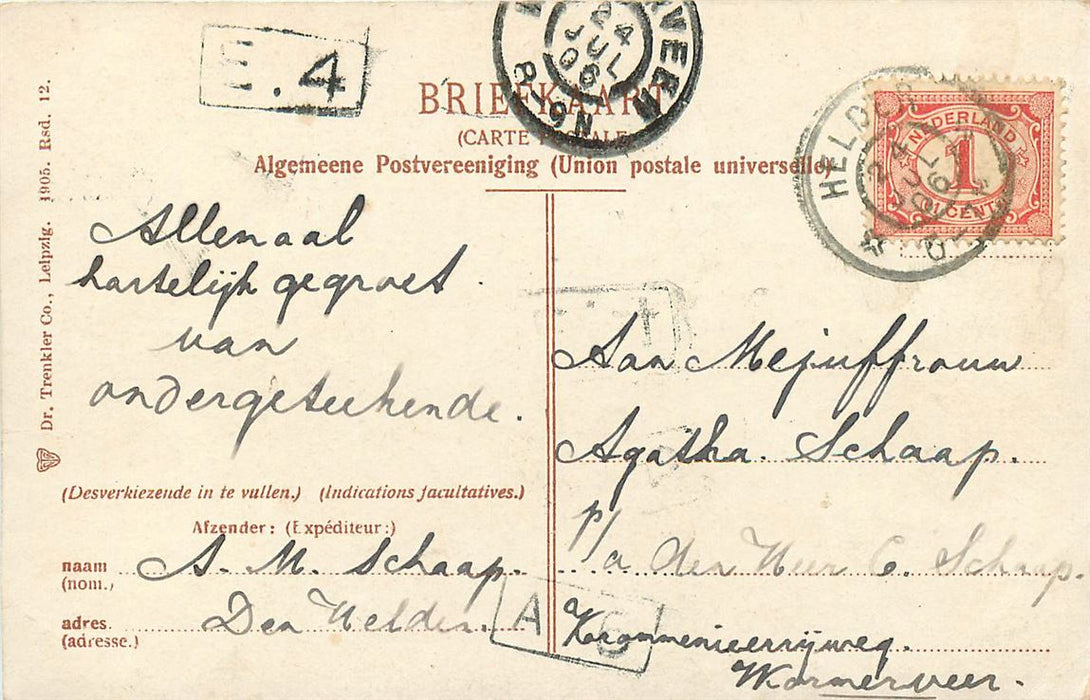 E. 4
24
JUL
06
8-9N
BRIEFKAART
(CARTE POSTALE)
Algemeene Postvereeniging (Union postale universelle)
HELDER
24
JUL
06
NEDERLAND
1
CENT
Dr. Trenkler Co., Leipzig. 1905. Rsd. 12.
Allemaal
hartelijk gegroet
van
ondergeteekende.
(Desverkiezende in te vullen.) (Indications facultatives.)
Afzender: (Expéditeur:)
naam A. M. Schaap.
(nom.)
adres. Den Helder.
(adresse.)
A 6
Aan Mejuffrouw
Agatha. Schaap.
p/a den Heer C. Schaap.
Krommenieerrijweg.
Wormerveer.